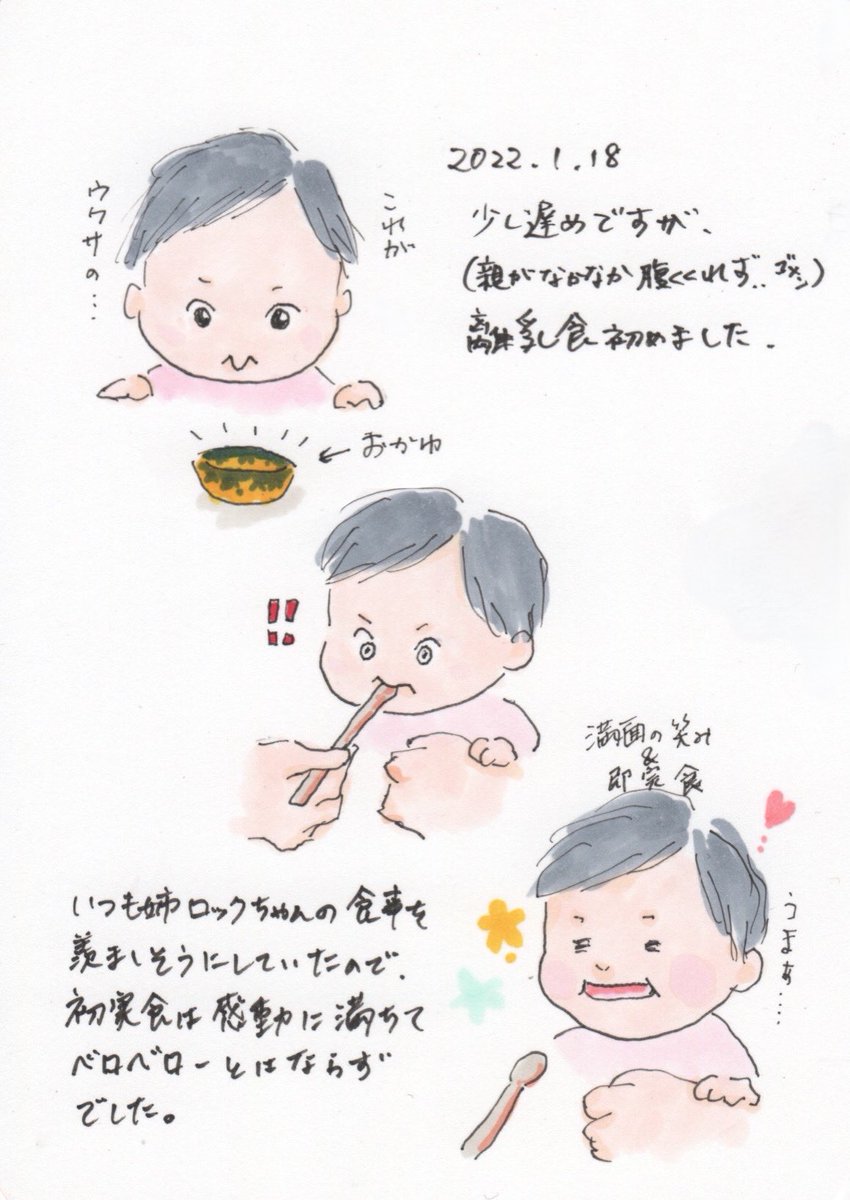 2022.1.18
少し遅めですが、
(親がなかなか腹くくれず..ゴメン)
離乳食初めました.
これが
ウワサの…
←おかゆ
!!
満面の笑み
&
即完食
うまぁ….
いつも姉ロックちゃんの食事を
羨ましそうにしていたので、
初実食は感動に満ちて
ベロベローとはならず
でした。